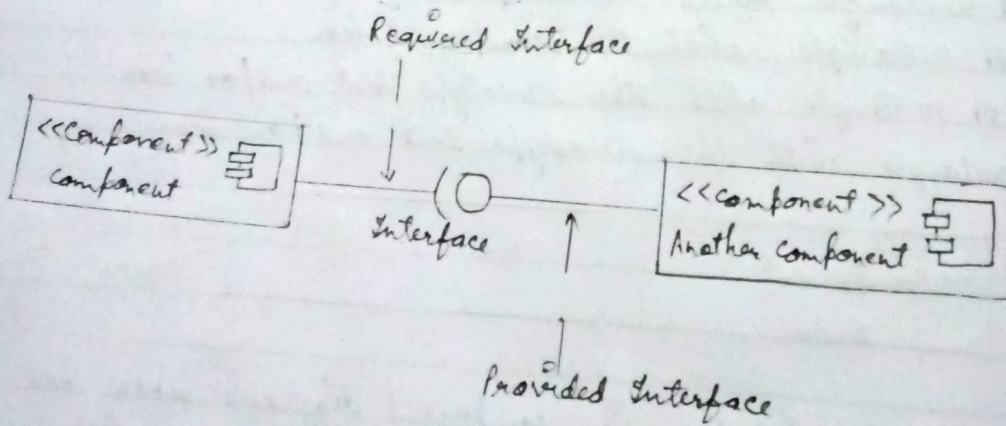 Required Interface
<<Component>>
component
Interface
<<component>>
Another component
Provided Interface